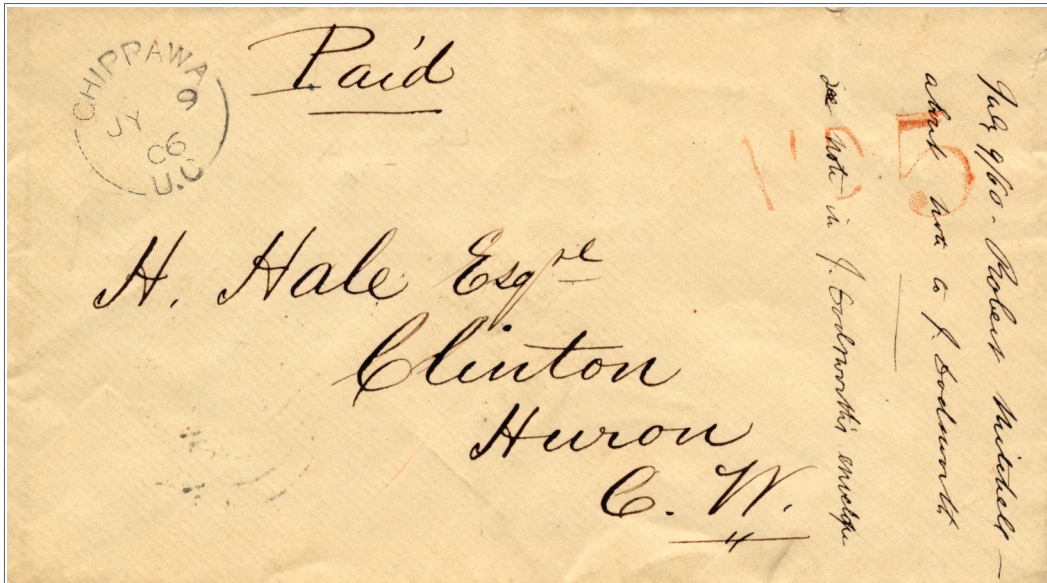 CHIPPAWA
9
JY
06
U.C
Paid
H. Hale Esqre
Clinton
Huron
C. W.
5
July 9/60 - Robert Mitchell -
about note to J. Dodsworth
see note in J. Dodsworth's envelope